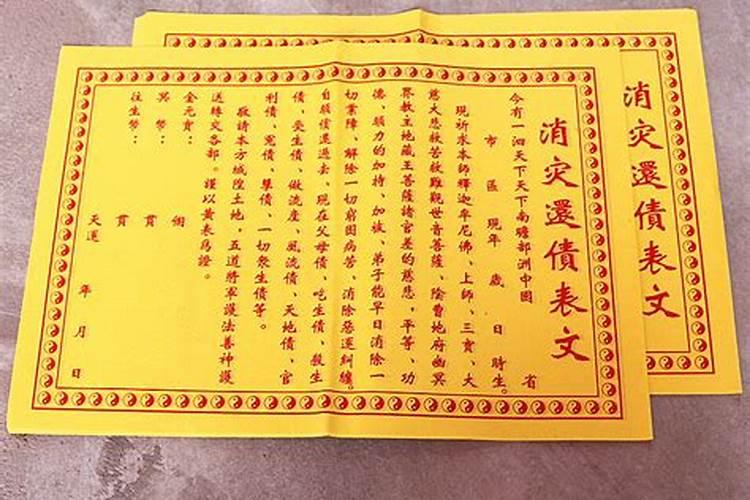 消灾還債表文
今有一泗天下天下南瞻部洲中國 省
市 區 現年 歲 日 時生。
現祈求本師釋迦牟尼佛、上師、三寶、大
慈大悲救苦救難觀世音菩薩、陰曹地府幽冥
界教主地藏王菩薩諸官差的慈悲，平等、功
德、願力的加持、加被、弟子能早日消除一
切業障、解除一切窮困病苦、消除惡運糾纏。
自願償還過去、現在父母債、吃生債、殺生
債、受生債、做流產、風流債、天地債、官
利債、冤債、孽債、一切眾生債等。
敬請本方城隍土地，五道將軍護法善神護
送轉交各部。謹以黃表為證。
金元寶： 個
冥 幣： 貫
往生幣： 貫
天運 年 月 日
消灾還債表文